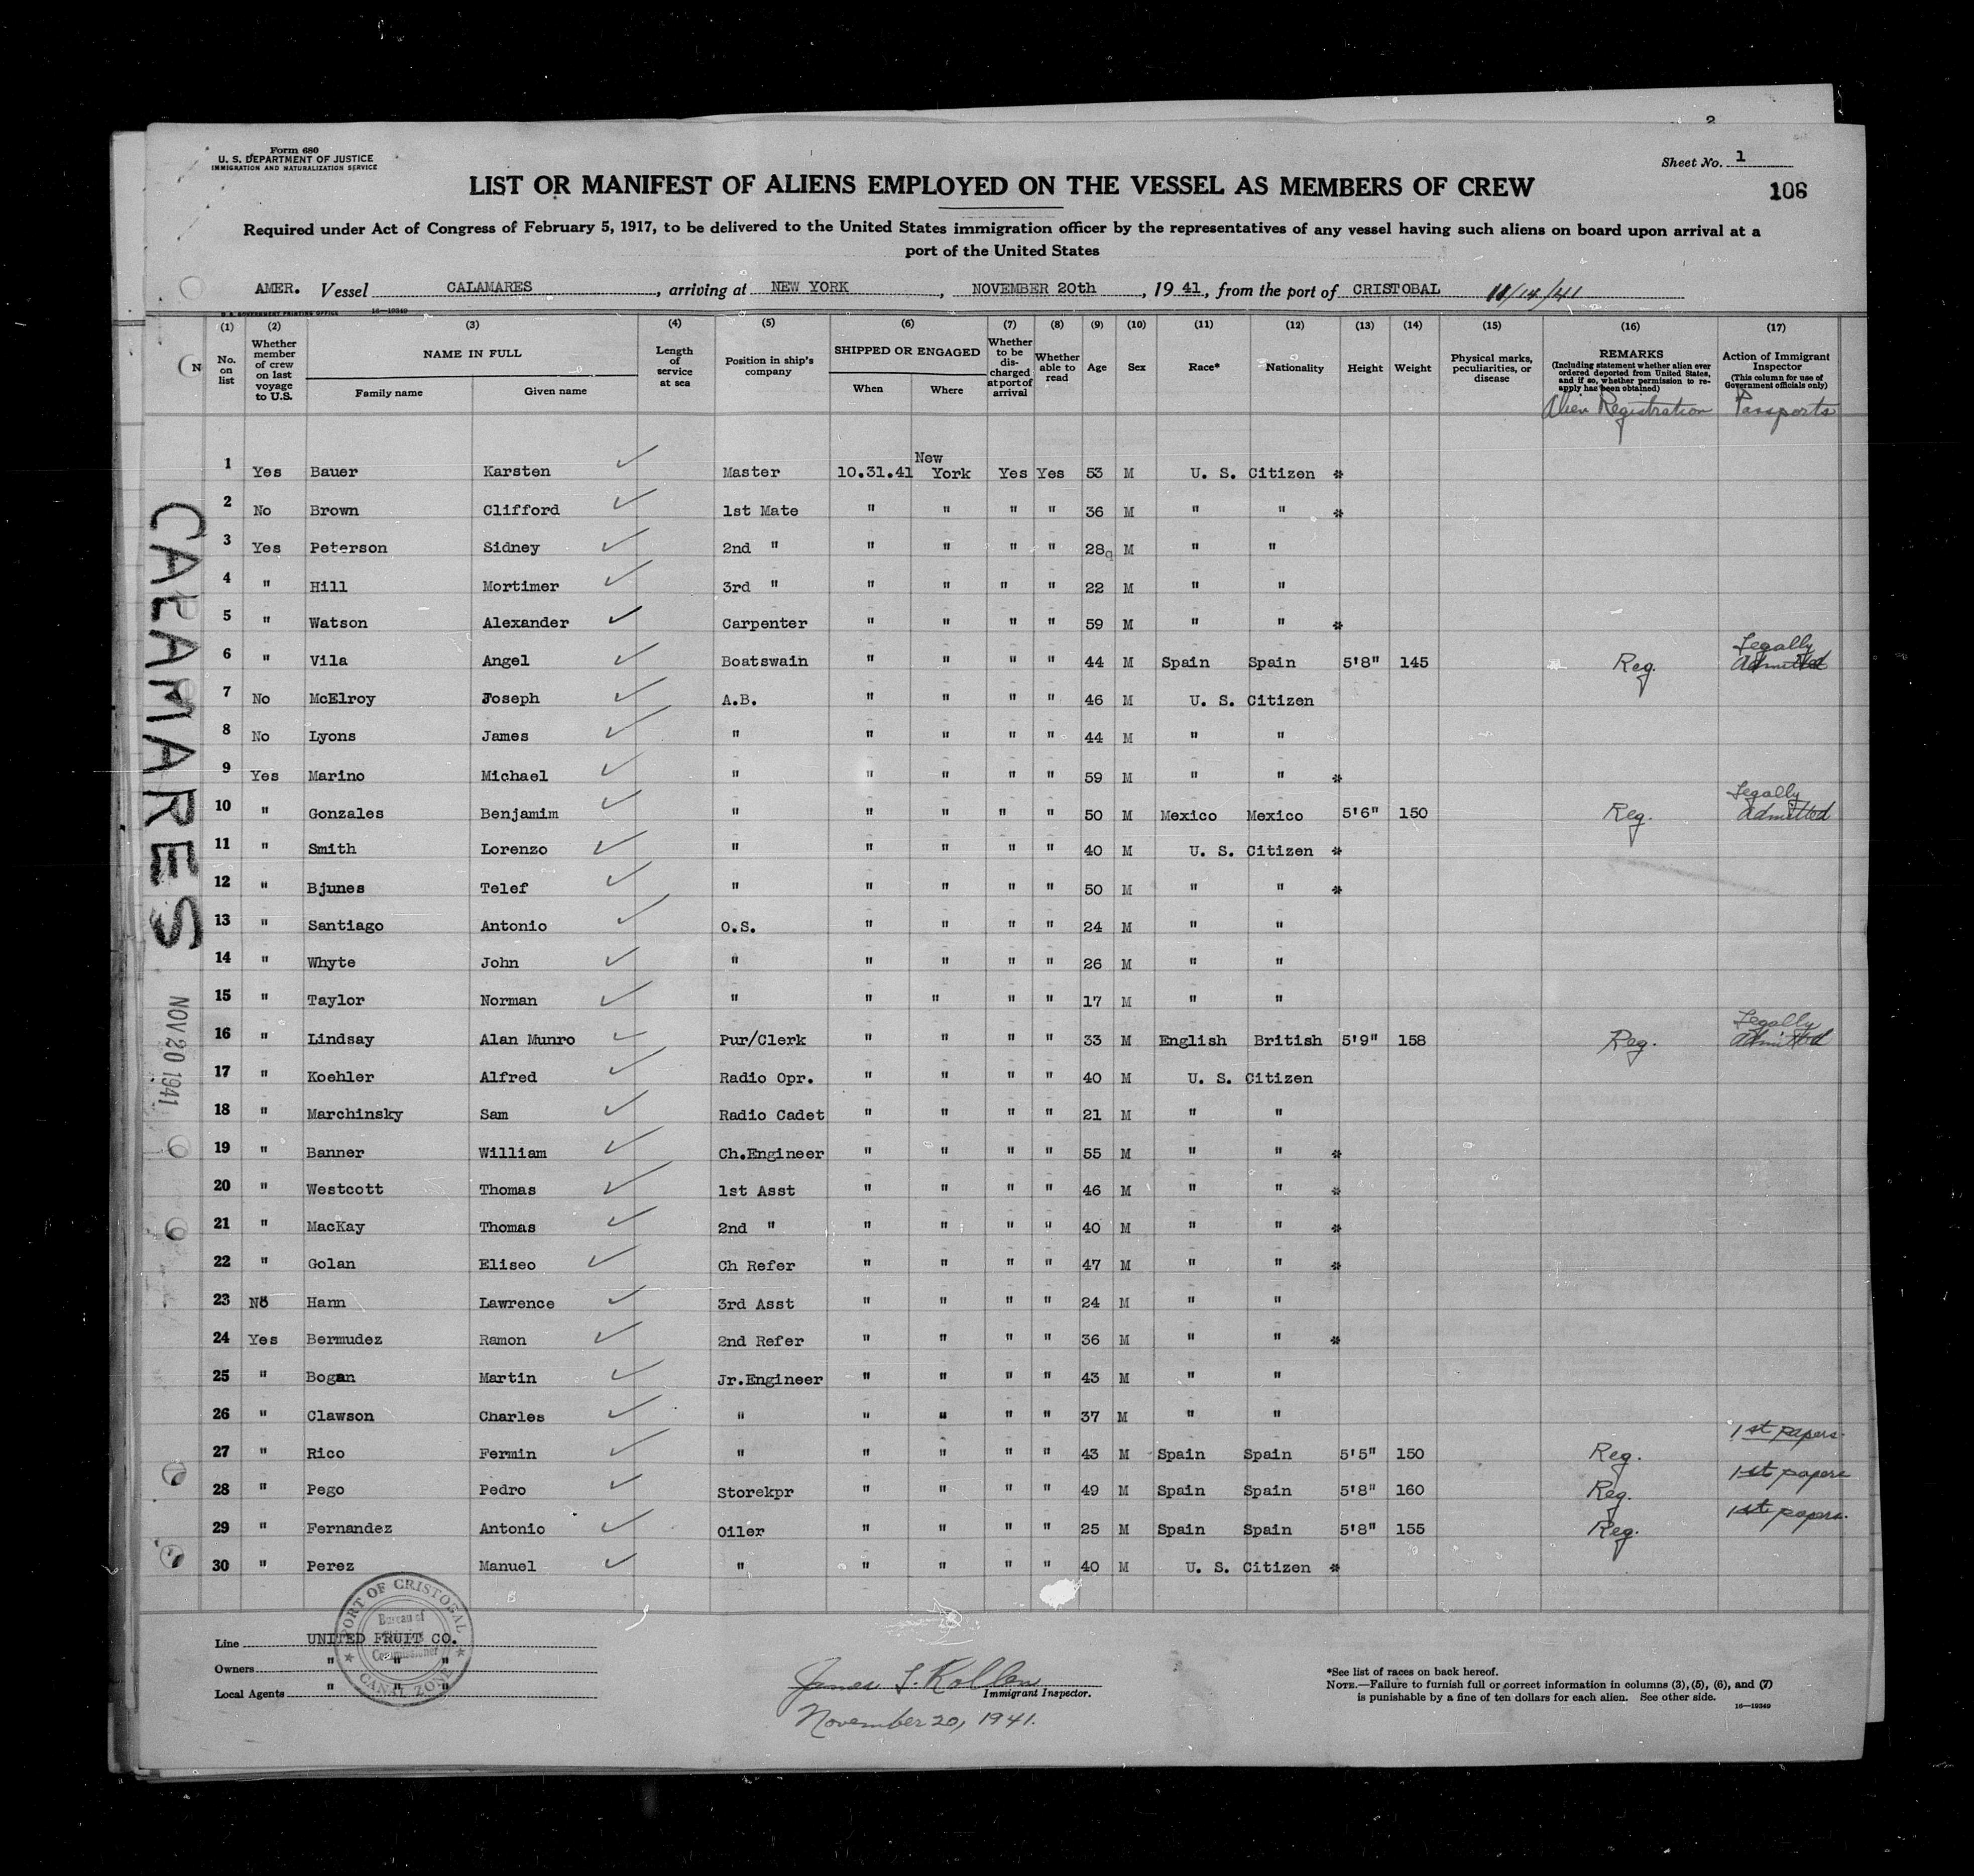 2
Form 680
U. S. DEPARTMENT OF JUSTICE
IMMIGRATION AND NATURALIZATION SERVICE
Sheet No. 1
LIST OR MANIFEST OF ALIENS EMPLOYED ON THE VESSEL AS MEMBERS OF CREW
106
Required under Act of Congress of February 5, 1917, to be delivered to the United States immigration officer by the representatives of any vessel having such aliens on board upon arrival at a
port of the United States
AMER. Vessel CALAMARES, arriving at NEW YORK, NOVEMBER 20th, 19 41, from the port of CRISTOBAL 11/14/41
U. S. GOVERNMENT PRINTING OFFICE 16—19349
(1) (2) (3) (4) (5) (6) (7) (8) (9) (10) (11) (12) (13) (14) (15) (16) (17)
No. on list
Whether member of crew on last voyage to U.S.
NAME IN FULL
Family name Given name
Length of service at sea
Position in ship's company
SHIPPED OR ENGAGED
When Where
Whether to be discharged at port of arrival
Whether able to read
Age
Sex
Race*
Nationality
Height
Weight
Physical marks, peculiarities, or disease
REMARKS
(Including statement whether alien ever ordered deported from United States, and if so, whether permission to re-apply has been obtained)
Alien Registration
Action of Immigrant Inspector
(This column for use of Government officials only)
Passports
N
CALAMARES
NOV 20 1941
1 Yes Bauer Karsten Master 10.31.41 New York Yes Yes 53 M U. S. Citizen *
2 No Brown Clifford 1st Mate " " " " 36 M " " *
3 Yes Peterson Sidney 2nd " " " " " 28 M " "
4 " Hill Mortimer 3rd " " " " " 22 M " "
5 " Watson Alexander Carpenter " " " " 59 M " " *
6 " Vila Angel Boatswain " " " " 44 M Spain Spain 5'8" 145 Reg. Legally Admitted
7 No McElroy Joseph A.B. " " " " 46 M U. S. Citizen
8 No Lyons James " " " " " 44 M " "
9 Yes Marino Michael " " " " " 59 M " " *
10 " Gonzales Benjamim " " " " " 50 M Mexico Mexico 5'6" 150 Reg. Legally Admitted
11 " Smith Lorenzo " " " " " 40 M U. S. Citizen *
12 " Bjunes Telef " " " " " 50 M " " *
13 " Santiago Antonio O.S. " " " " 24 M " "
14 " Whyte John " " " " " 26 M " "
15 " Taylor Norman " " " " " 17 M " "
16 " Lindsay Alan Munro Pur/Clerk " " " " 33 M English British 5'9" 158 Reg. Legally Admitted
17 " Koehler Alfred Radio Opr. " " " " 40 M U. S. Citizen
18 " Marchinsky Sam Radio Cadet " " " " 21 M " "
19 " Banner William Ch.Engineer " " " " 55 M " " *
20 " Westcott Thomas 1st Asst " " " " 46 M " " *
21 " MacKay Thomas 2nd " " " " " 40 M " " *
22 " Golan Eliseo Ch Refer " " " " 47 M " " *
23 No Hann Lawrence 3rd Asst " " " " 24 M " "
24 Yes Bermudez Ramon 2nd Refer " " " " 36 M " " *
25 " Bogan Martin Jr.Engineer " " " " 43 M " "
26 " Clawson Charles " " " " " 37 M " "
27 " Rico Fermin " " " " " 43 M Spain Spain 5'5" 150 Reg. 1st papers.
28 " Pego Pedro Storekpr " " " " 49 M Spain Spain 5'8" 160 Reg. 1st papers
29 " Fernandez Antonio Oiler " " " " 25 M Spain Spain 5'8" 155 Reg. 1st papers.
30 " Perez Manuel " " " " " 40 M U. S. Citizen *
PORT OF CRISTOBAL
Bureau of
Commissioner
CANAL ZONE
Line UNITED FRUIT CO.
Owners " " "
Local Agents " " "
James
Immigrant Inspector.
November 20, 1941.
*See list of races on back hereof.
NOTE.—Failure to furnish full or correct information in columns (3), (5), (6), and (7)
is punishable by a fine of ten dollars for each alien. See other side.
16—19349